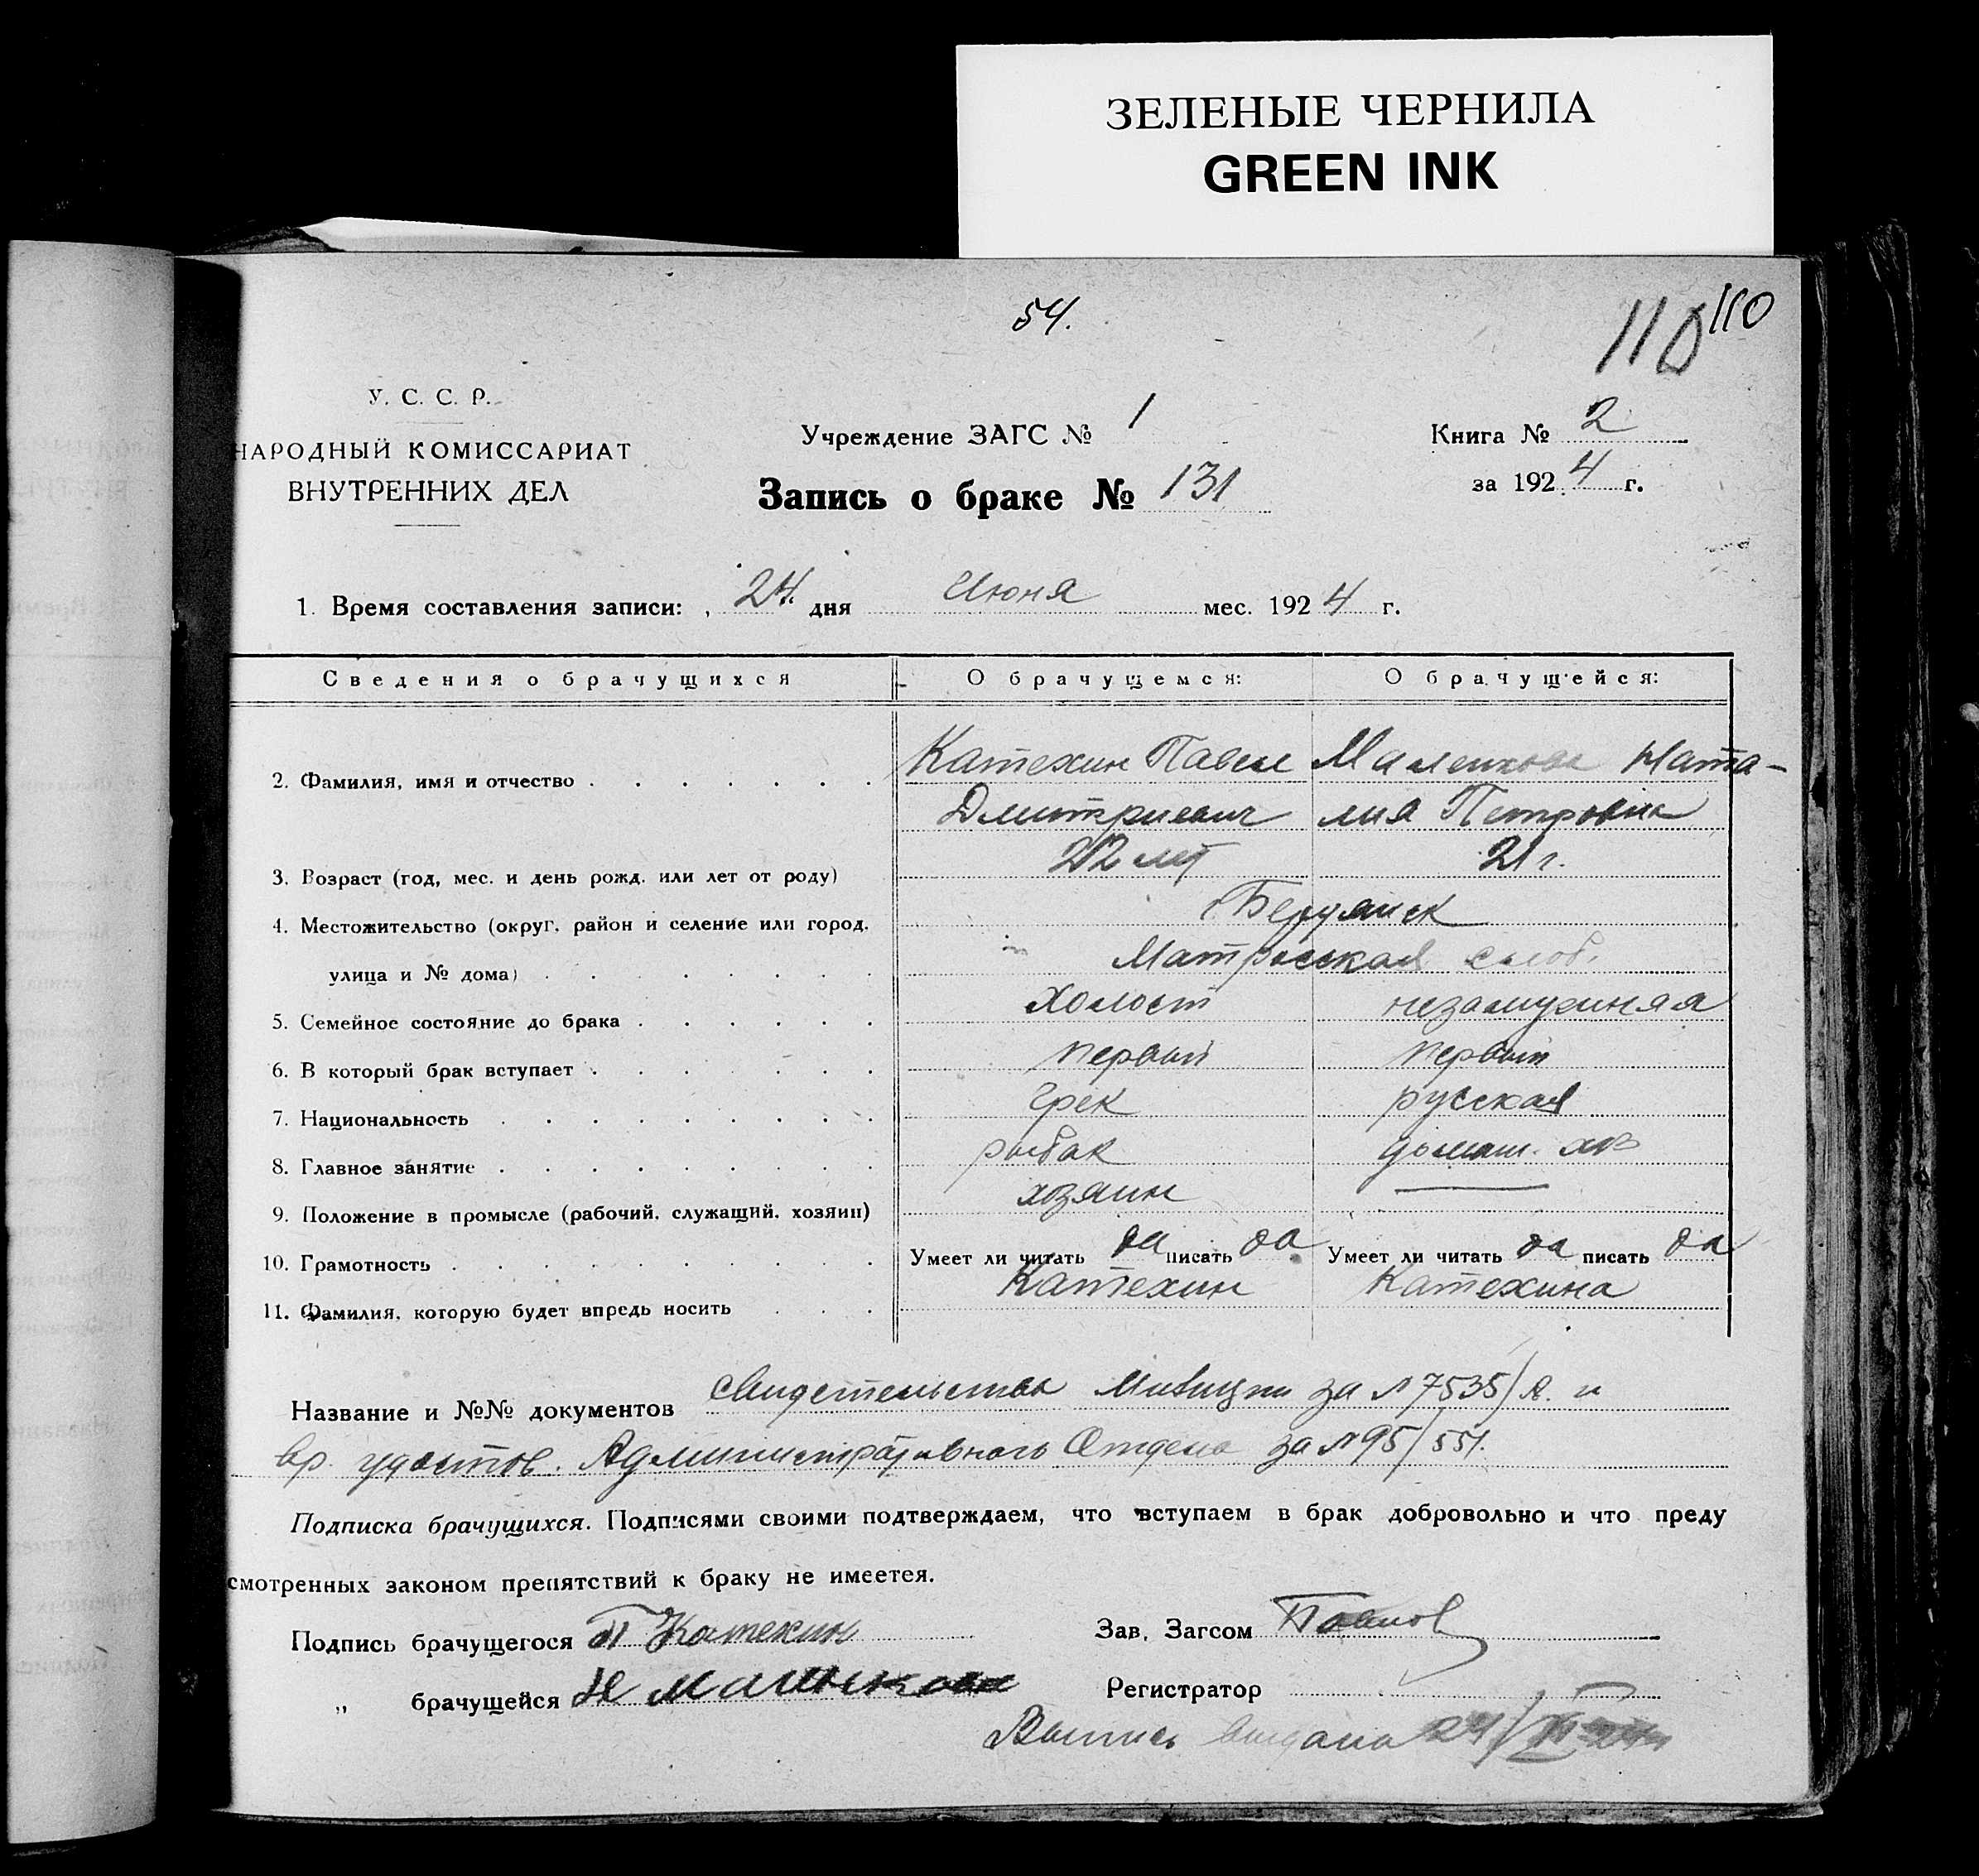 ЗЕЛЕНЫЕ ЧЕРНИЛА
GREEN INK
54.
110 110
У. С. С. Р.
НАРОДНЫЙ КОМИССАРИАТ
ВНУТРЕННИХ ДЕЛ
Учреждение ЗАГС № 1
Книга № 2
Запись о браке № 131
за 1924 г.
1. Время составления записи: 24. дня Июня мес. 1924 г.
Сведения о брачущихся О брачущемся: О брачущейся:
2. Фамилия, имя и отчество Катехин Павел Маленкова Ната-
Дмитриевич лия Петровна
3. Возраст (год, мес. и день рожд. или лет от роду) 22 лет 21 г.
4. Местожительство (округ, район и селение или город, г. Бердянск
улица и № дома) Матросская слоб.
5. Семейное состояние до брака холост незамужняя
6. В который брак вступает первый первый
7. Национальность грек русская
8. Главное занятие рыбак домаш. хоз
9. Положение в промысле (рабочий, служащий, хозяин) хозяин
10. Грамотность Умеет ли читать да писать да Умеет ли читать да писать да
11. Фамилия, которую будет впредь носить Катехин Катехина
Название и №№ документов свидетельства Милиции за № 7535/А. и
вр. удостов. Административного Отдела за № 95/551.
Подписка брачущихся. Подписями своими подтверждаем, что вступаем в брак добровольно и что преду
смотренных законом препятствий к браку не имеется.
Подпись брачущегося П Катехин Зав. Загсом Павлов
„ брачущейся Н Маленкова Регистратор
Выпись выдана 24/VI-24